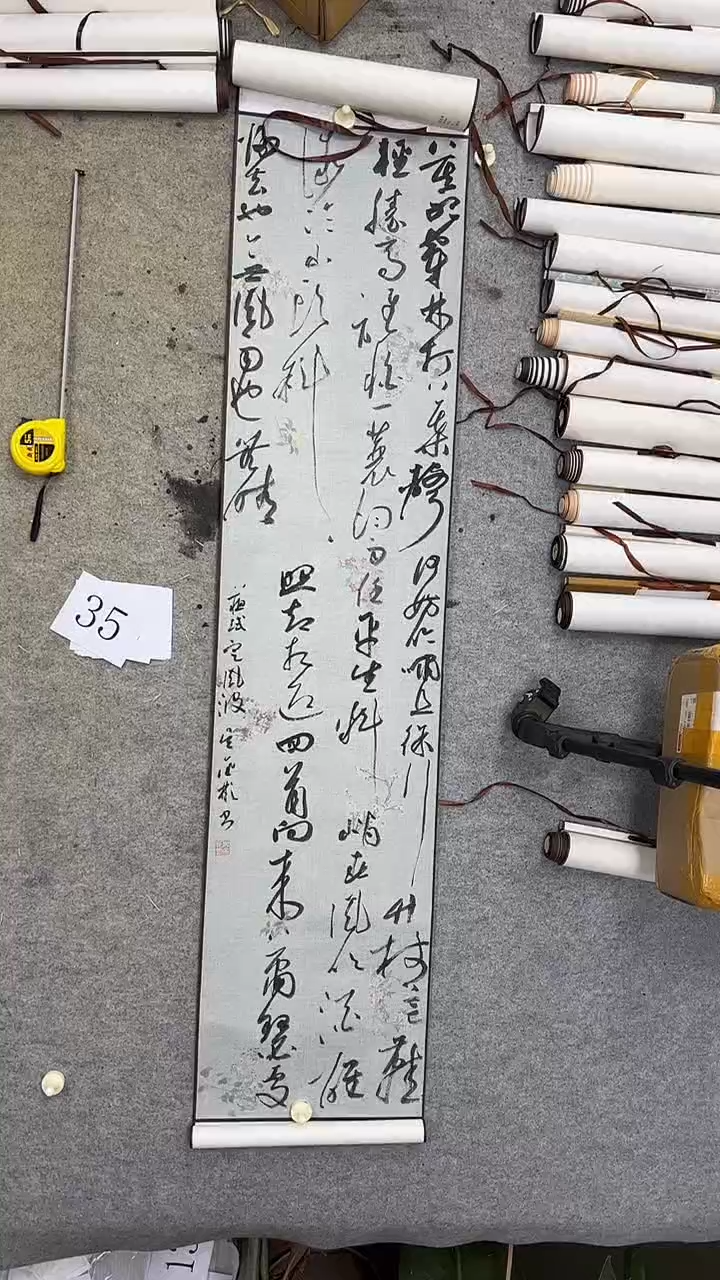 莫听穿林打叶声何妨吟啸且徐行竹杖芒鞋
轻胜马谁怕一蓑烟雨任平生料峭春风吹酒醒
微冷山头斜照却相迎回首向来萧瑟处
归去也无风雨也无晴
苏轼定风波 书
35